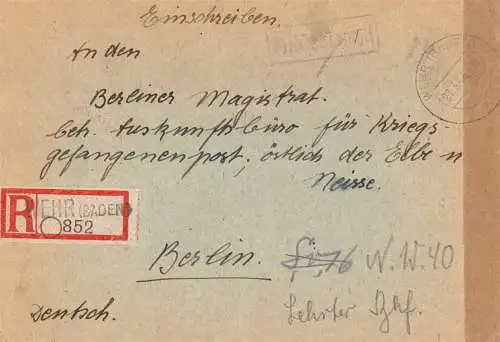 Einschreiben.
An den
Berliner Magistrat.
betr. Auskunftsbüro für Kriegs-
gefangenenpost, östlich der Elbe u
Neisse.
R
WEHR (BADEN)
852
Berlin. N.W. 40
Lehrter Bhf.
Deutsch.